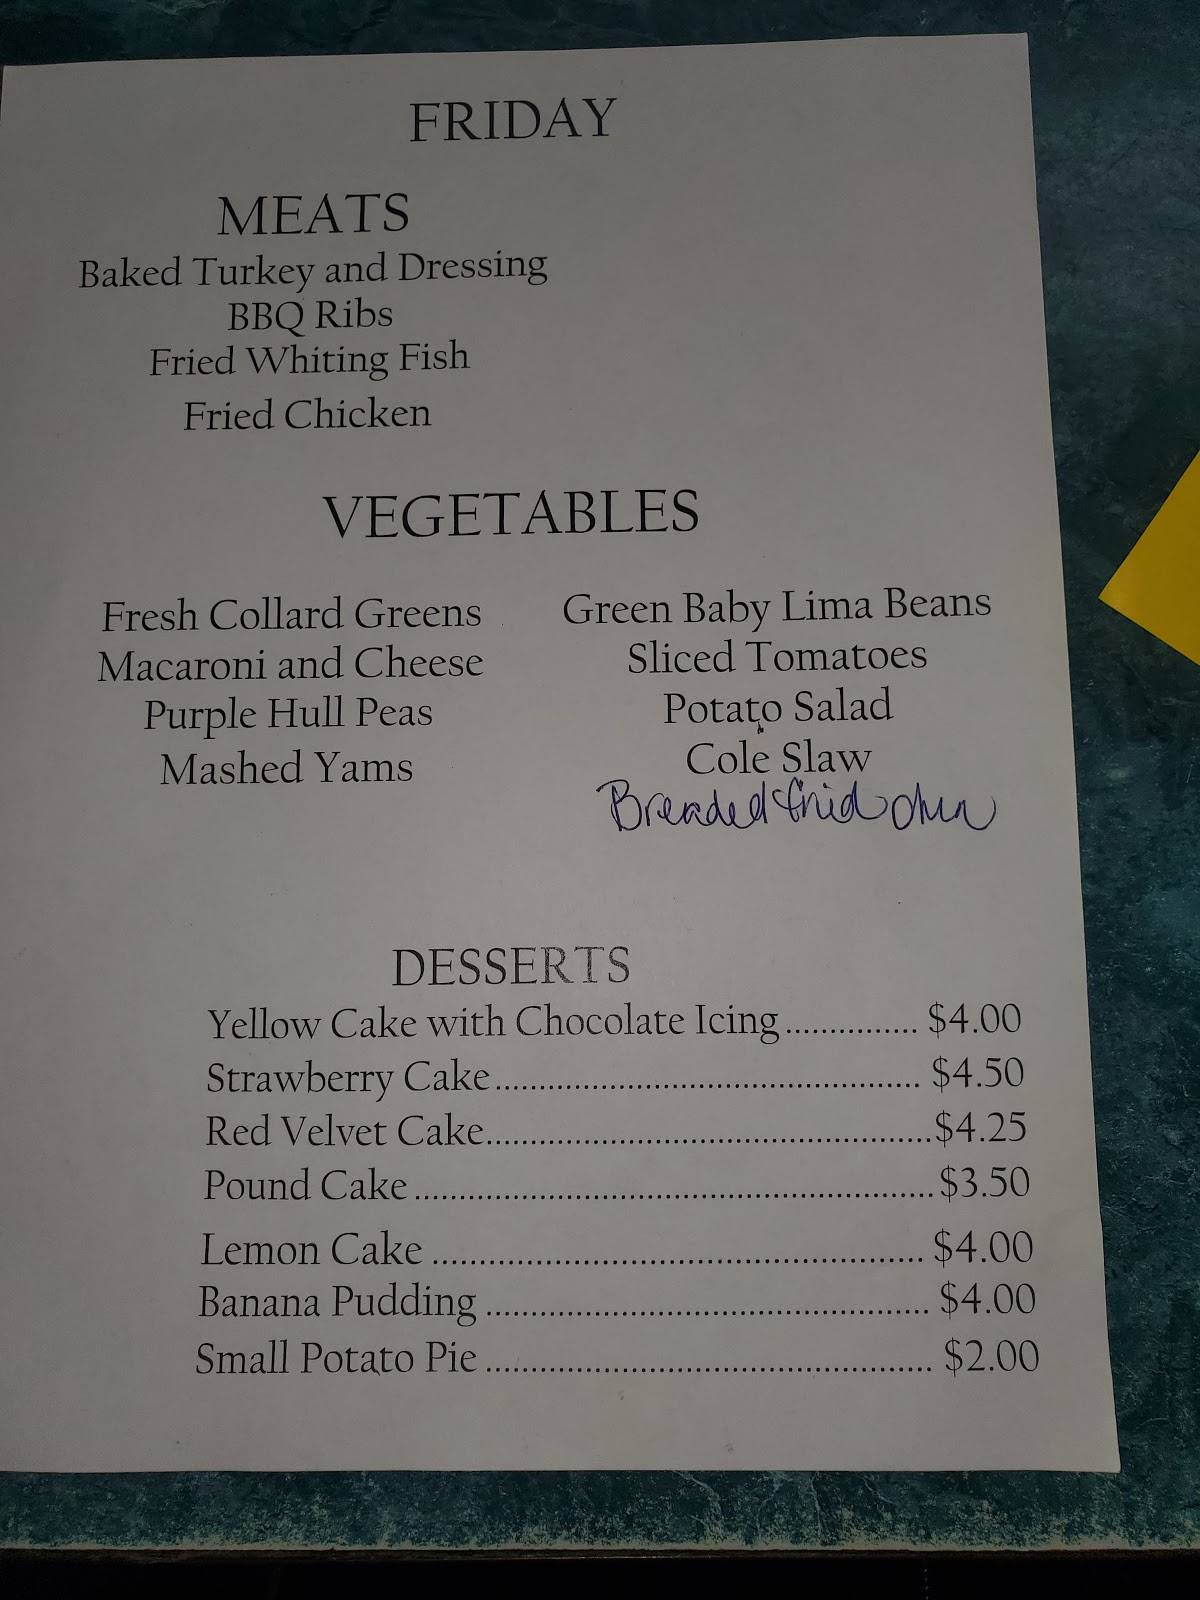 FRIDAY
MEATS
Baked Turkey and Dressing
BBQ Ribs
Fried Whiting Fish
Fried Chicken
VEGETABLES
Fresh Collard Greens
Macaroni and Cheese
Purple Hull Peas
Mashed Yams
Green Baby Lima Beans
Sliced Tomatoes
Potato Salad
Cole Slaw
Breaded fried okra
DESSERTS
Yellow Cake with Chocolate Icing............... $4.00
Strawberry Cake............................................... $4.50
Red Velvet Cake.................................................$4.25
Pound Cake.........................................................$3.50
Lemon Cake ...................................................... $4.00
Banana Pudding ................................................. $4.00
Small Potato Pie ................................................. $2.00